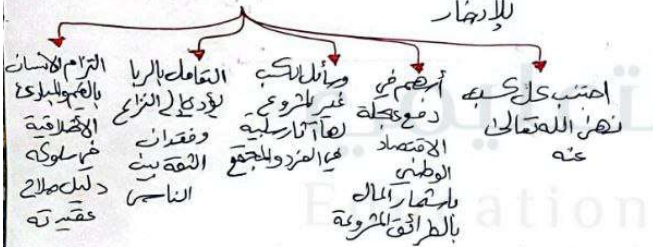 للإدخار
اجتنب كل كسب
نهى الله تعالى
عنه
أسهم في
دفع عجلة
الاقتصاد
الوطني
باستثمار المال
بالطرائق المشروعة
وسائل الكسب
غير المشروع
لها آثار سلبية
في الفرد والمجتمع
التعامل بالربا
يؤدي إلى النزاع
وفقدان
الثقة بين
الناس
التزام الإنسان
بالقيم والمبادئ
الأخلاقية
في سلوكه
دليل صلاح
عقيدته